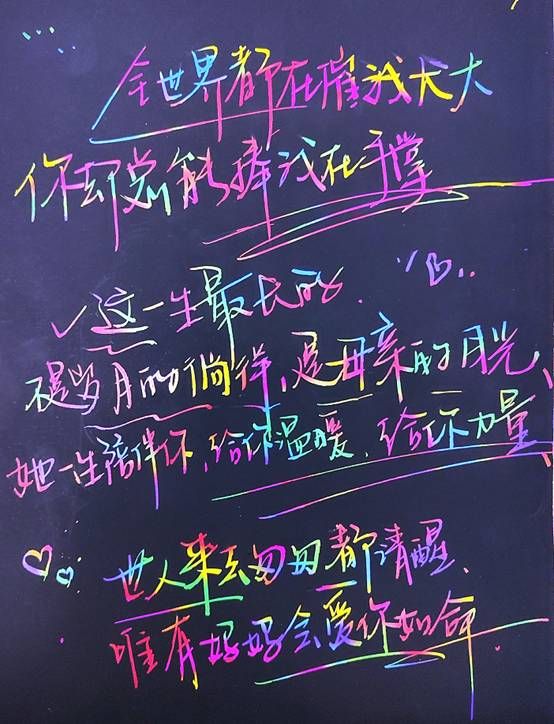 全世界都在催我长大
你却总能捧我在手掌
这一生最长的
不是岁月的徜徉，是母亲的目光
她一生陪伴你，给你温暖，给你力量
世人来去匆匆都清醒，
唯有妈妈会爱你如命